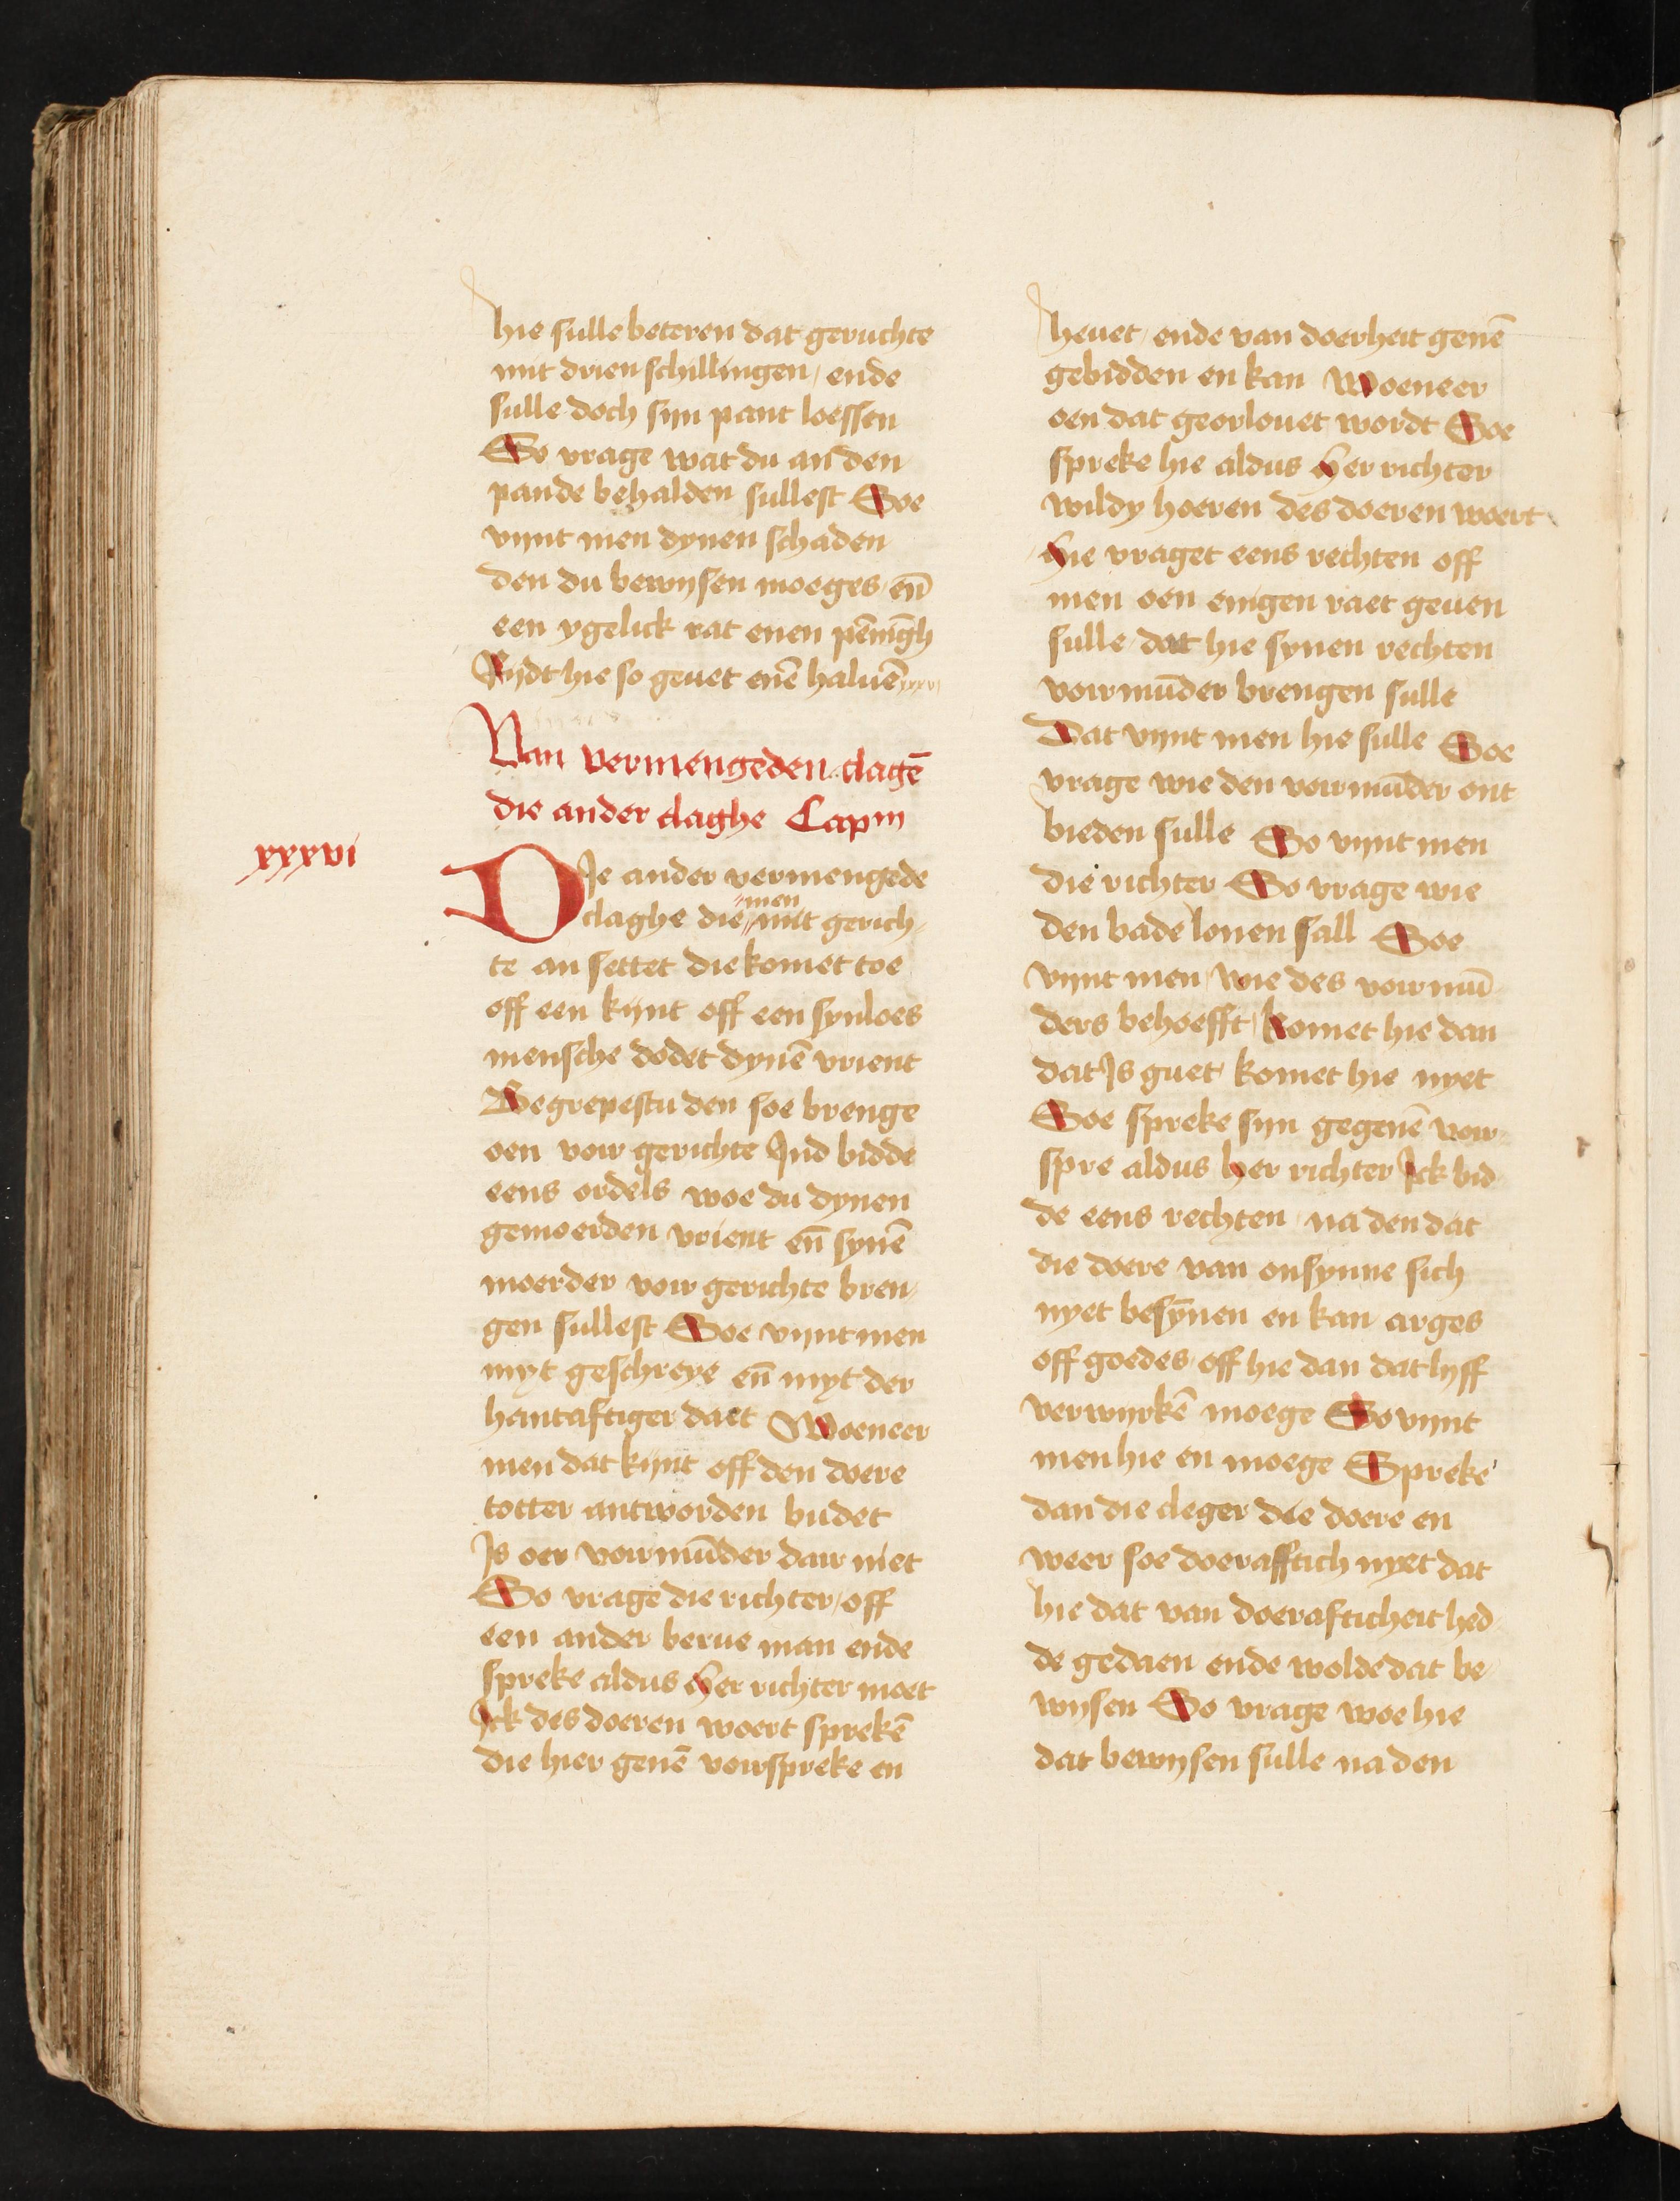 hie sulle beteren dat geruchte
mit drien schillingen / ende
sulle doch sijn pant loessen
So vrage wat du an den
pande behalden sullest Soe
vijnt men dynen schaden
den du bewijsen moeges / en̄
een ygelick rat enen pēnigh
Rijdt hie so geuet enē haluē xxxvi
Van vermengeden clagē
die ander claghe Capm
xxxvi
DJe ander vermengede
men
claghe die mit gerich-
te an settet die komet toe
off een kijnt off een synloes
mensche dodet dynē vrient
Begrepestu den soe brenge
oen voir gerichte Jnd bidde
eens ordels woe du dynen
gemoerden vrient en̄ synē
moerder voir gerichte bren-
gen sullest Soe vijnt men
myt geschreye en̄ myt der
hantaftiger daet Woeneer
men dat kijnt off den doere
totter antworden budet
Js oer voirmūder dair niet
So vrage die richter / off
een ander berue man ende
spreke aldus Her richter moet
Jck des doeren woert sprekē
die hier genē voirspreke en
heuet / ende van doerheit genē
gebidden en kan Woeneer
oen dat georlouet wordt Soe
spreke hie aldus Her richter
wildy hoeren des doeren woert
Hie vraget eens rechten off
men oen enigen raet geuen
sulle / dat hie synen rechten
voirmūder brengen sulle
Dat vijnt men hie sulle Soe
vrage wie den voirmūder ont
bieden sulle So vijnt men
die richter So vrage wie
den bade lonen sall Soe
vijnt men / wie des voirmū-
ders behoefft / komet hie dan
dat Js guet komet hie nyet
Soe spreke sijn gegenē voir-
spre aldus her richter Jck bid
de eens rechten / na den dat
die doere van onsynne sich
nyet besȳnen en kan arges
off goedes / off hie dan dat lyff
verwyrkē moege So vijnt
men hie en moege Spreke
dan die cleger die doere en
weer soe doerafftich nyet dat
hie dat van doeraftichett hed-
de gedaen ende wolde dat be-
wijsen So vrage woe hie
dat bewijsen sulle na den